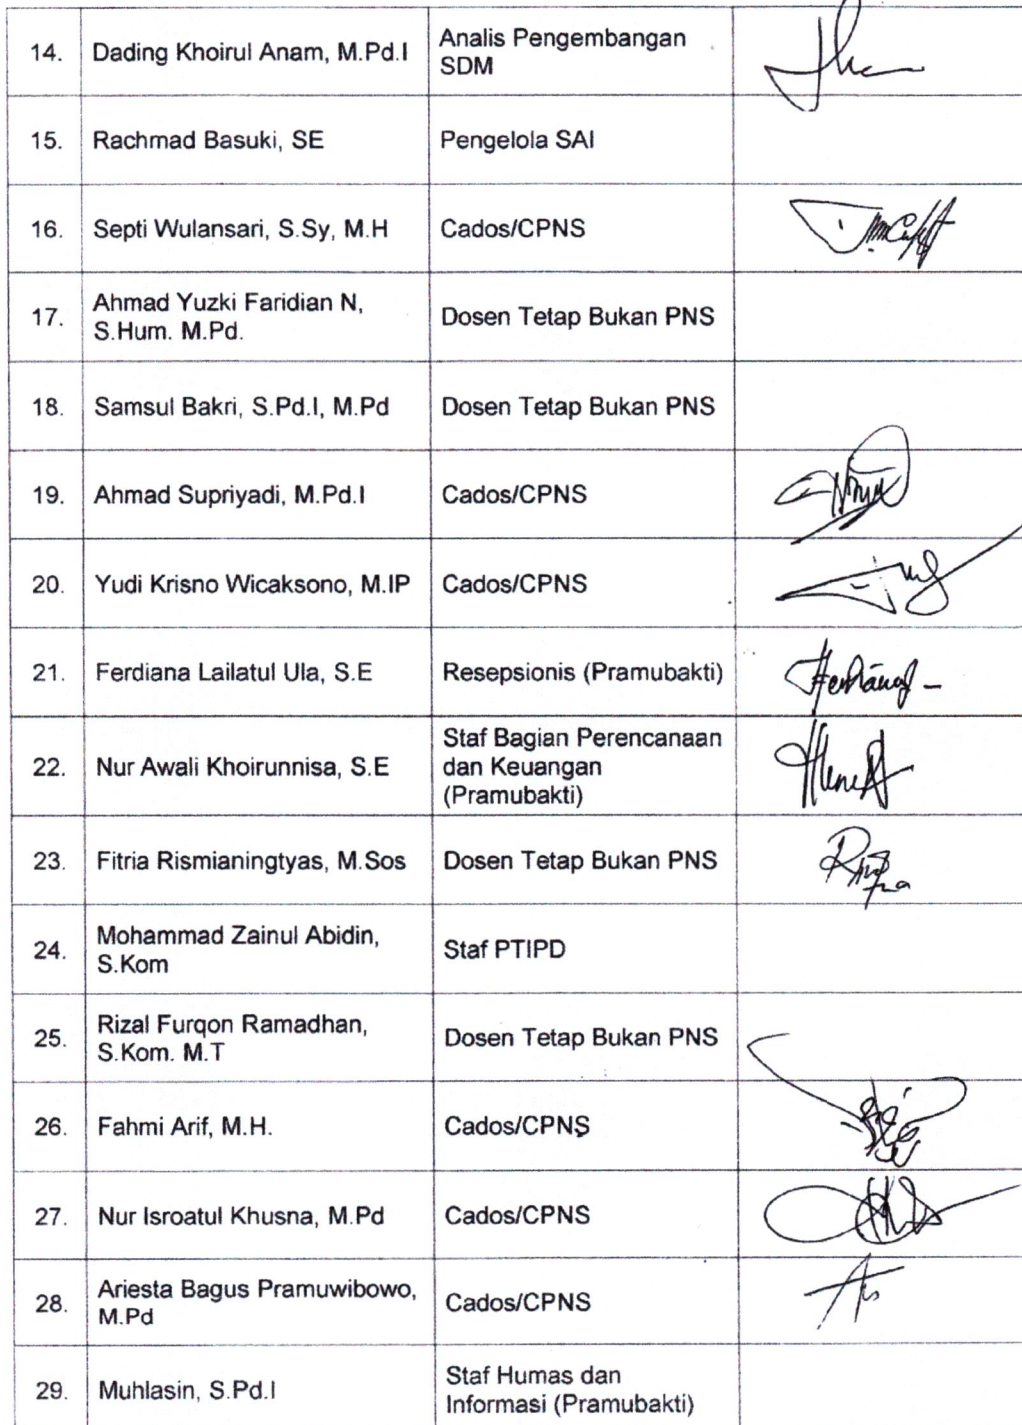 14. Dading Khoirul Anam, M.Pd.I Analis Pengembangan
SDM
15. Rachmad Basuki, SE Pengelola SAI
16. Septi Wulansari, S.Sy, M.H Cados/CPNS
17. Ahmad Yuzki Faridian N,
S.Hum. M.Pd. Dosen Tetap Bukan PNS
18. Samsul Bakri, S.Pd.I, M.Pd Dosen Tetap Bukan PNS
19. Ahmad Supriyadi, M.Pd.I Cados/CPNS
20. Yudi Krisno Wicaksono, M.IP Cados/CPNS
21. Ferdiana Lailatul Ula, S.E Resepsionis (Pramubakti)
22. Nur Awali Khoirunnisa, S.E Staf Bagian Perencanaan
dan Keuangan
(Pramubakti)
23. Fitria Rismianingtyas, M.Sos Dosen Tetap Bukan PNS
24. Mohammad Zainul Abidin,
S.Kom Staf PTIPD
25. Rizal Furqon Ramadhan,
S.Kom. M.T Dosen Tetap Bukan PNS
26. Fahmi Arif, M.H. Cados/CPNS
27. Nur Isroatul Khusna, M.Pd Cados/CPNS
28. Ariesta Bagus Pramuwibowo,
M.Pd Cados/CPNS
29. Muhlasin, S.Pd.I Staf Humas dan
Informasi (Pramubakti)